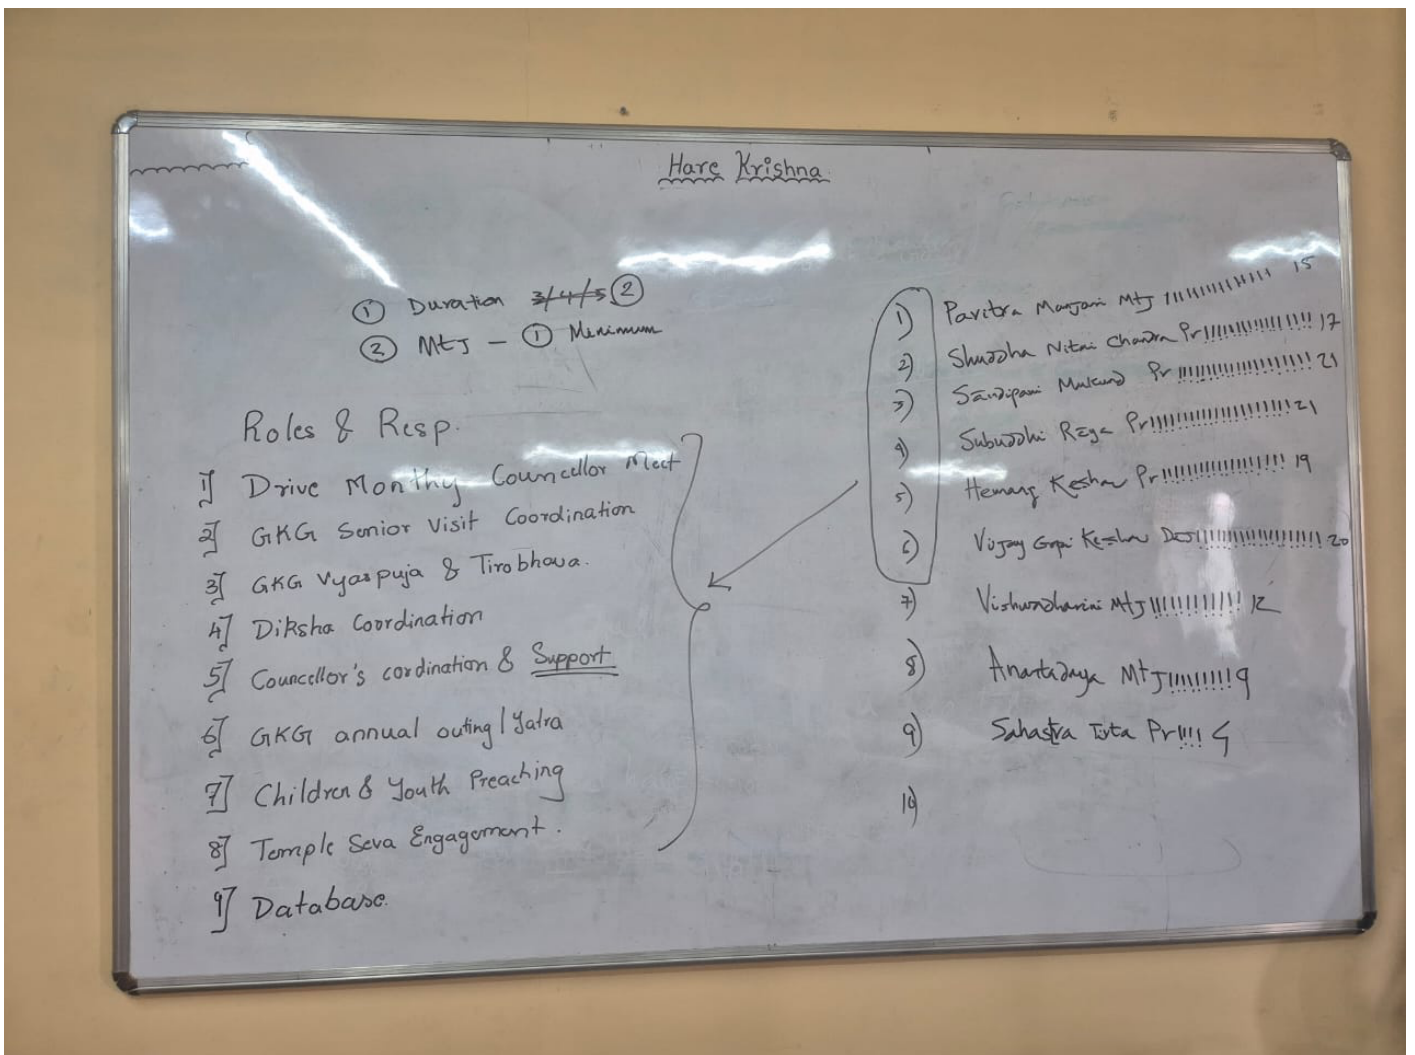 Hare Krishna
① Duration 3/4/5 ②
② MtJ - ① Minimum
Roles & Resp.
1] Drive Monthy Councellor Meet
2] GKG Senior Visit Coordination
3] GKG Vyaspuja & Tirobhava.
4] Diksha Coordination
5] Councellor's cordination & Support
6] GKG annual outing / Yatra
7] Children & Youth Preaching
8] Temple Seva Engagement.
9] Database.
1) Pavitra Manjari MtJ 15
2) Shuddha Nitai Chandra Pr 17
3) Sandipani Mukund Pr 21
4) Subuddhi Raya Pr 21
5) Hemang Keshav Pr 19
6) Vijay Gopi Keshav 20
7) Vishwadharini MtJ 12
8) MtJ 9
9) Sahastra Pr 4
10)